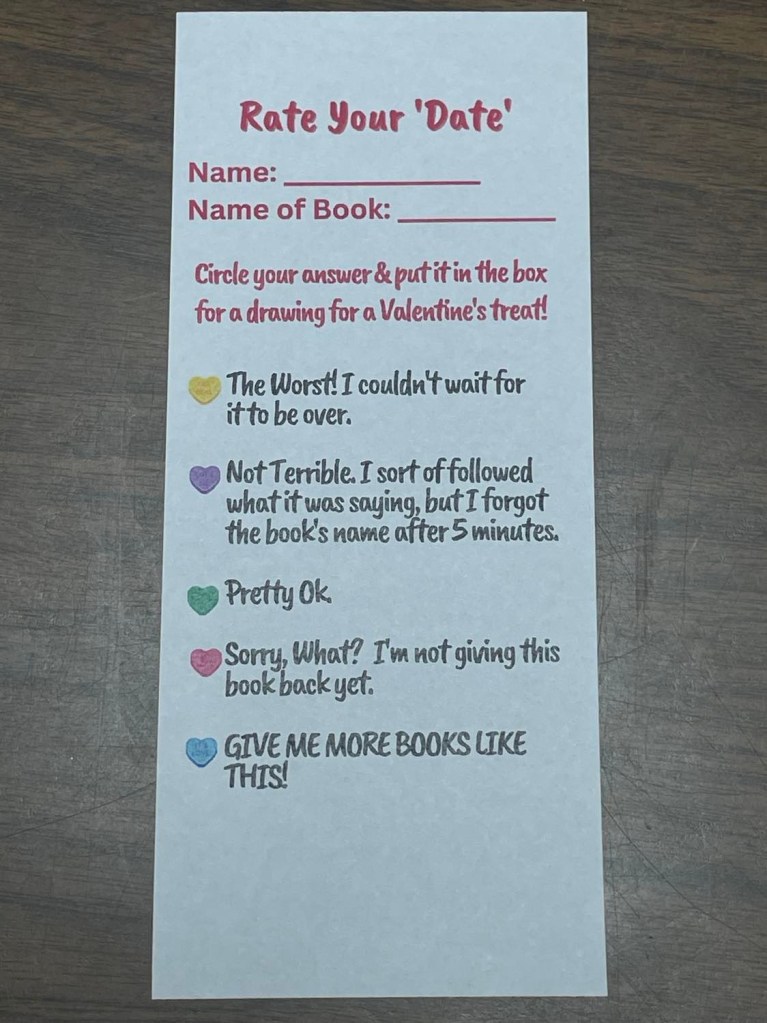 Rate Your 'Date'
Name: ______________
Name of Book: ___________
Circle your answer & put it in the box
for a drawing for a Valentine's treat!
The Worst! I couldn't wait for
it to be over.
Not Terrible. I sort of followed
what it was saying, but I forgot
the book's name after 5 minutes.
Pretty Ok.
Sorry, What? I'm not giving this
book back yet.
GIVE ME MORE BOOKS LIKE
THIS!